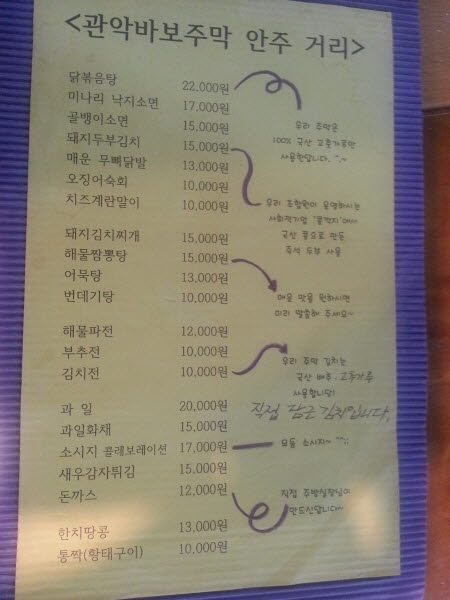 <관악바보주막 안주 거리>
닭볶음탕 22,000원
미나리 낙지소면 17,000원
골뱅이소면 15,000원
돼지두부김치 15,000원
매운 무뼈닭발 13,000원
오징어숙회 10,000원
치즈계란말이 10,000원
우리 주막은
100% 국산 고춧가루만
사용한답니다. ^.~
우리 조합원이 운영하시는
사회적기업 '콩깍지'에서
국산 콩으로 만든
즉석 두부 사용
돼지김치찌개 15,000원
해물짬뽕탕 15,000원
어묵탕 13,000원
번데기탕 10,000원
매운 맛을 원하시면
미리 말씀해 주세요~
해물파전 12,000원
부추전 10,000원
김치전 10,000원
우리 주막 김치는
국산 배추, 고추가루
사용합니당!
직접 담근 김치입니다.
과 일 20,000원
과일화채 15,000원
소시지 콜레보레이션 17,000원
모듬 소시지~ ^^;;
새우감자튀김 15,000원
돈까스 12,000원
직접 주방실장님이
만드신답니다~
한치땅콩 13,000원
통짝(황태구이) 10,000원